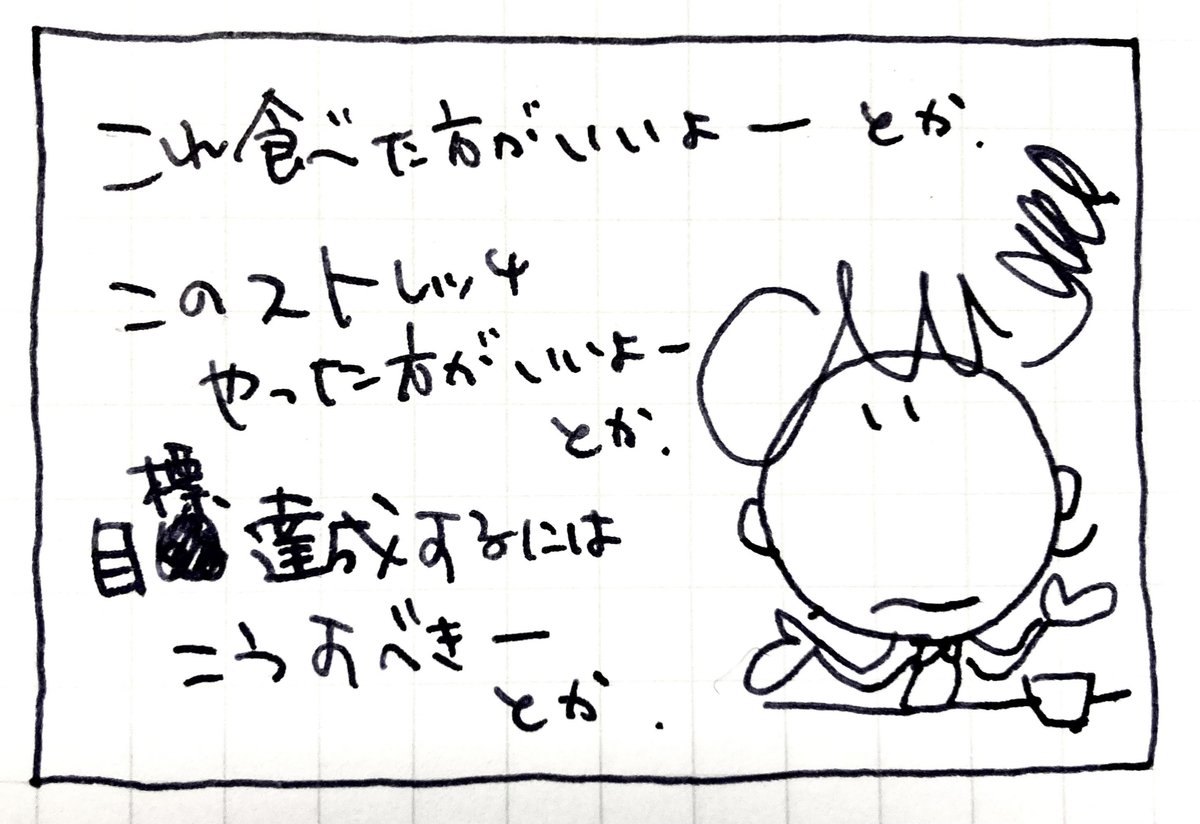 これ食べた方がいいよー とか.
このストレッチ
やった方がいいよー
とか.
目標達成するには
こうすべきー
とか.